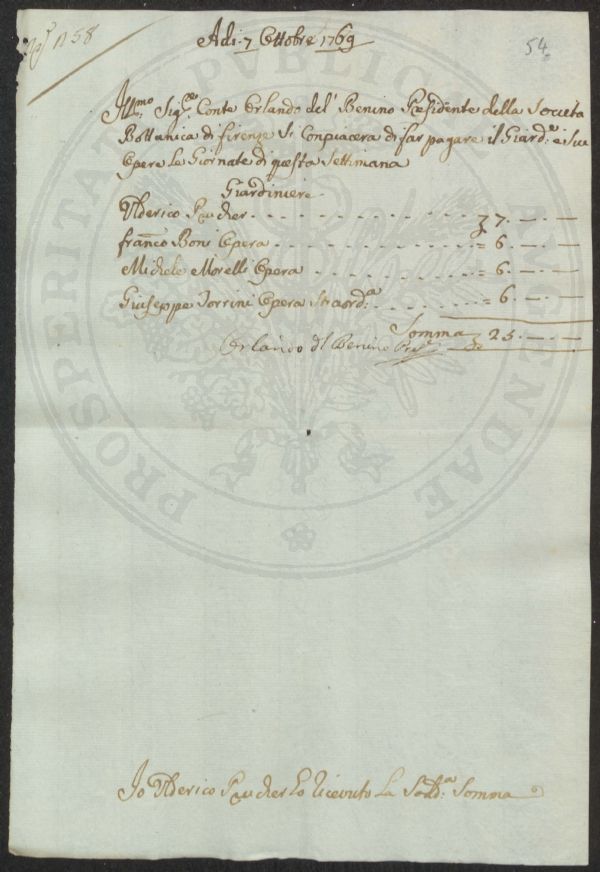 N° 58
54
Adi. 7 Ottobre 1769
Ill:mo Sig:re Conte Orlando del' Benino Presidente della Società
Bottanica di firenze Si Conpiacera di far pagare il Giard:e e Sue
Opere Le Giornate di questa Settimana
Giardiniere
Ulderico Prucher - - - - - - - - - 7. — · —
franco Boni Opera - - - - - - - - = 6. — · —
Michele Morelli Opera - - - - - - = 6. — · —
Giuseppe Torrini Opera Straord:a - - - - = 6. — · —
Somma 25. — · —
Orlando del Benino Pres:e
Io Ulderico Prucher ho Riceuto La Sudd:a Somma
PROSPERITATI PVBLICAE AVGENDAE